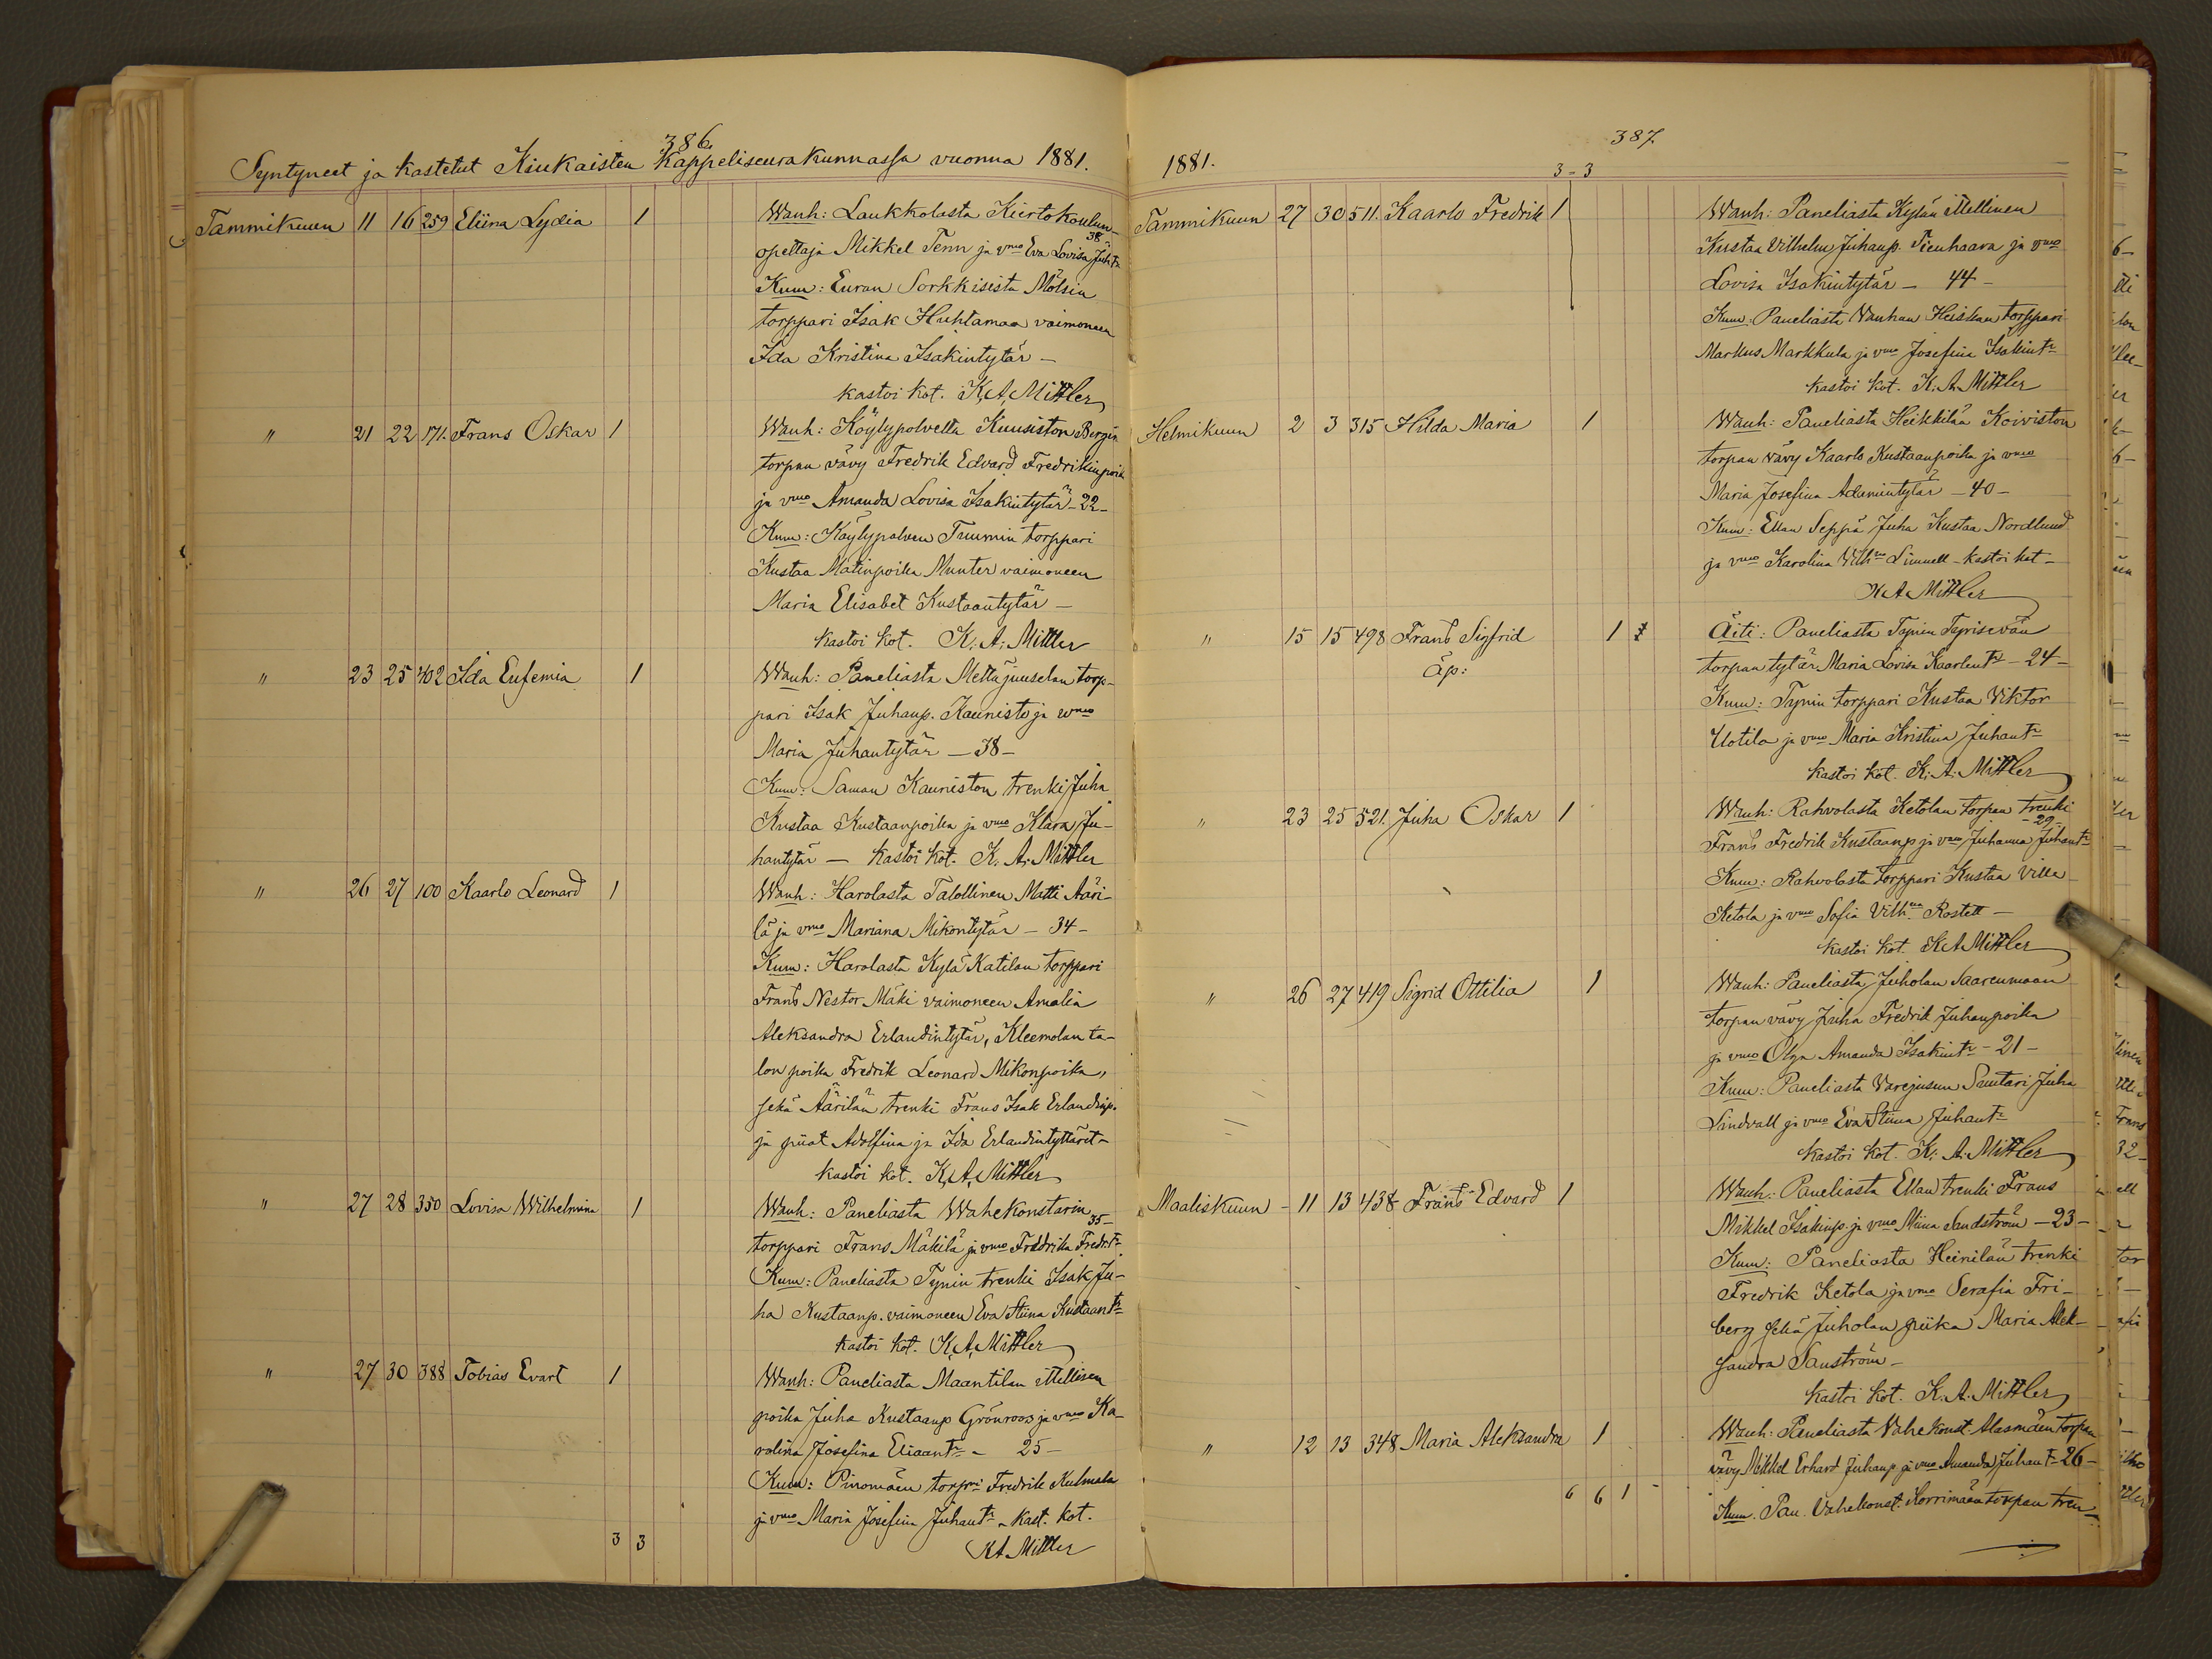 386.
Syntyneet ja kastetut Kiukaisten Kappeliseurakunnassa vuonna 1881.
Tammikuun 11 16 259 Eliina Lydia 1 Wanh: Laukkolasta Kiertokoulun-
opettaja Mikkel Tenn ja vmo Eva Lovisa Juh.tr 38
Kum: Euran Sorkkisista Mölsin
torppari Isak Huhtamaa vaimoneen
Ida Kristina Isakintytär –
kastoi kot. K. A. Mittler
" 21 22 171. Frans Oskar 1 Wanh: Köylypolvelta Kuusiston Bergin
torpan vävy Fredrik Edvard Fredrikinpoika
ja vmo Amanda Lovisa Isakintytär – 22 –
Kum: Köylypolven Tuumin torppari
Kustaa Matinpoika Munter vaimoneen
Maria Elisabet Kustaantytär –
kastoi kot. K. A. Mittler
" 23 25 402 Ida Eufemia 1 Wanh: Paneliasta Mettäjuuselan torp-
pari Isak Juhanp. Kaunisto ja vmo
Maria Juhantytär – 38 –
Kum: Saman Kauniston trenki Juha
Kustaa Kustaanpoika ja vmo Klara Ju-
hantytär – kastoi kot. K. A. Mittler
" 26 27 100 Kaarlo Leonard 1 Wanh: Harolasta Talollinen Matti Ääri-
lä ja vmo Mariana Mikontytär – 34 –
Kum: Harolasta Kylä Katilan torppari
Frans Nestor Mäki vaimoneen Amalia
Aleksandra Erlandintytär, Kleemolan ta-
lon poika Fredrik Leonard Mikonpoika,
sekä Äärilän trenki Frans Isak Erlandinp.
ja piiat Adolfina ja Ida Erlandintyttäret –
kastoi kot. K. A. Mittler
" 27 28 350 Lovisa Wilhelmina 1 Wanh: Paneliasta Wahekonstarin
torppari Frans Mäkilä ja vmo Fredrika Fredr.tr 35 –
Kum: Paneliasta Tynin trenki Isak Ju-
ha Kustaanp. vaimoneen Eva Stiina Kustaantr
kastoi kot. K. A. Mittler
" 27 30 388 Tobias Evart 1 Wanh: Paneliasta Maantilan itsellisen
poika Juha Kustaanp Grönroos ja vmo Ka-
rolina Josefina Eliaantr – 25 –
Kum: Pinomäen torpri Fredrik Kulmala
ja vmo Maria Josefina Juhantr – kast. kot.
3 3 KA Mittler
387
1881.
3 – 3
Tammikuun 27 30 511. Kaarlo Fredrik 1 Wanh: Paneliasta Kylän itsellinen
Kustaa Vilhelm Juhanp. Tienhaara ja vmo
Lovisa Isakintytär – 44 –
Kum: Paneliasta Wanhan Heiskan torppari
Markus Markkula ja vmo Josefina Isakintr
kastoi kot. K. A. Mittler
Helmikuun 2 3 315 Hilda Maria 1 Wanh: Paneliasta Heikkilän Koiviston
torpan vävy Kaarlo Kustaanpoika ja vmo
Maria Josefina Adamintytär – 40 –
Kum: Ellan Seppä Juha Kustaa Nordlund
ja vmo Karolina Vilh.na Linnell – kastoi kot –
K A Mittler
" 15 15 498 Frans Sigfrid 1 Äiti: Paneliasta Tynin
äp: torpan tytär Maria Lovisa Kaarlentr – 24 –
Kum: Tynin torppari Kustaa Viktor
Uotila ja vmo Maria Kristina Juhantr
kastoi kot. K. A. Mittler
" 23 25 521. Juha Oskar 1 Wanh: Rahvolasta Ketolan torpan trenki
Frans Fredrik Kustaanp ja vmo Juhanna Juhantr – 29 –
Kum: Rahvolasta torppari Kustaa Villa
Ketola ja vmo Sofia Vilh.na Rostett –
kastoi kot. K A Mittler
" 26 27 419 Sigrid Ottilia 1 Wanh: Paneliasta Juholan Saarenmaan
torpan vävy Juha Fredrik Juhanpoika
ja vmo Olga Amanda Isakintr – 21 –
Kum: Paneliasta Varejusun Suutari Juha
Lindvall ja vmo Eva Stiina Juhantr
kastoi kot. K. A. Mittler
Maaliskuun – 11 13 438 Frans Edvard 1 Wanh: Paneliasta Ellan trenki Frans
Mikkel Isakinp. ja vmo Miina Sandström – 23 –
Kum: Paneliasta Heinilän trenki
Fredrik Ketola ja vmo Serafia Fri-
berg sekä Juholan piika Maria Alek-
sandra Sanström –
kastoi kot. K. A. Mittler
" 12 13 348 Maria Aleksandra 1 Wanh: Paneliasta Vahekonst. Alasmäen torpan
vävy Mikkel Erhard Juhanp ja vmo Amanda Juhantr – 26 –
6 6 1 Kum. Pan. Vahekonst. Korrimäen torpan tren-